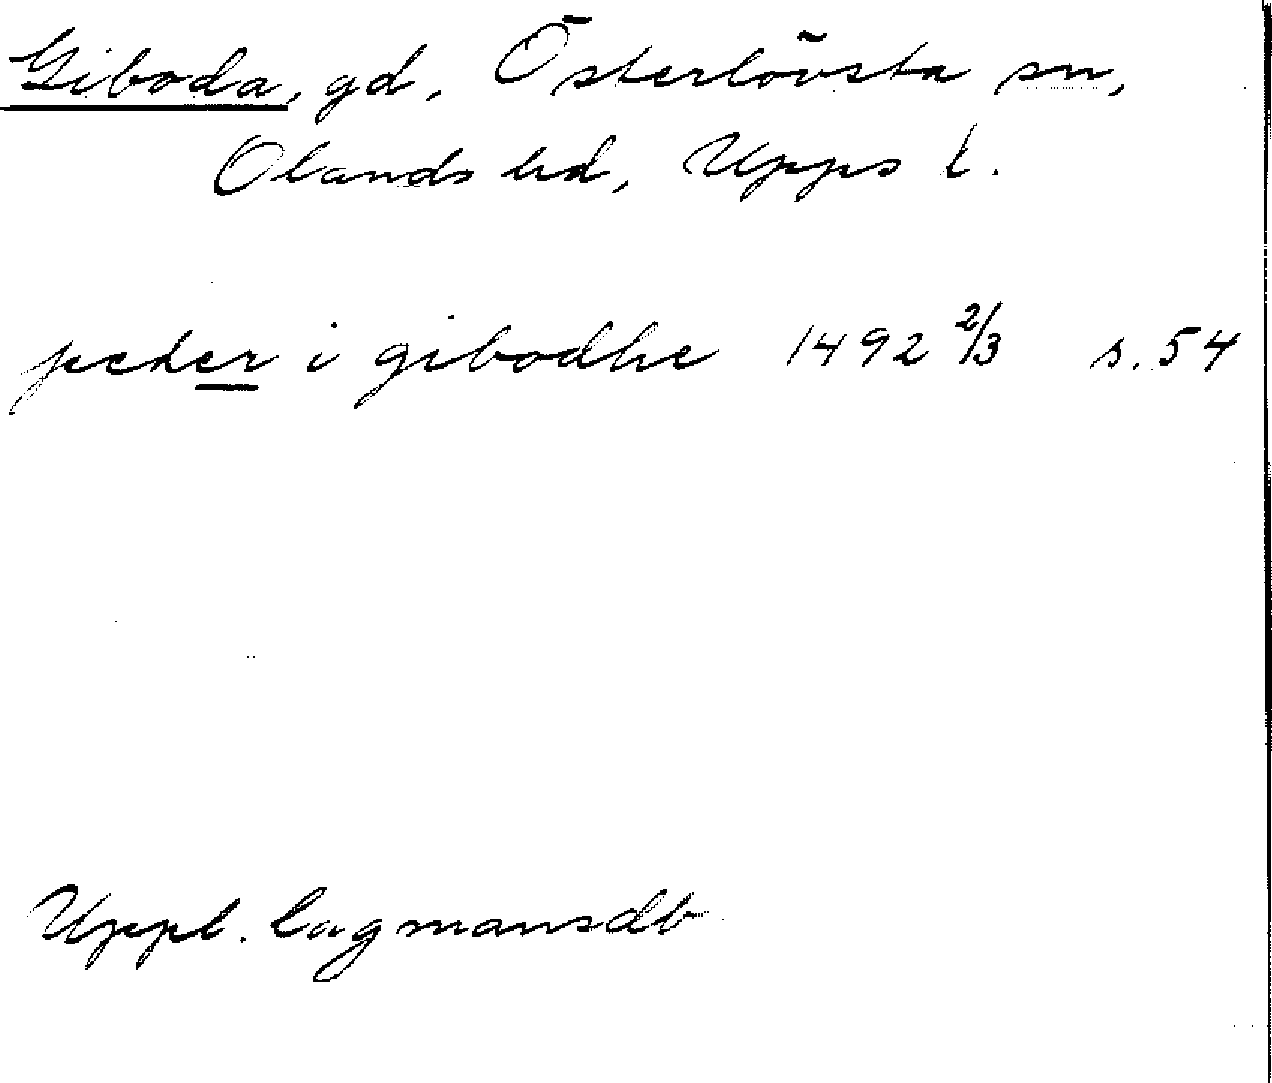 Giboda, gd, Österlövsta sn,
Olands hd, Upps l.
peter i gibodhe 1492 2/3 s. 54
Uppl. lagmansdb